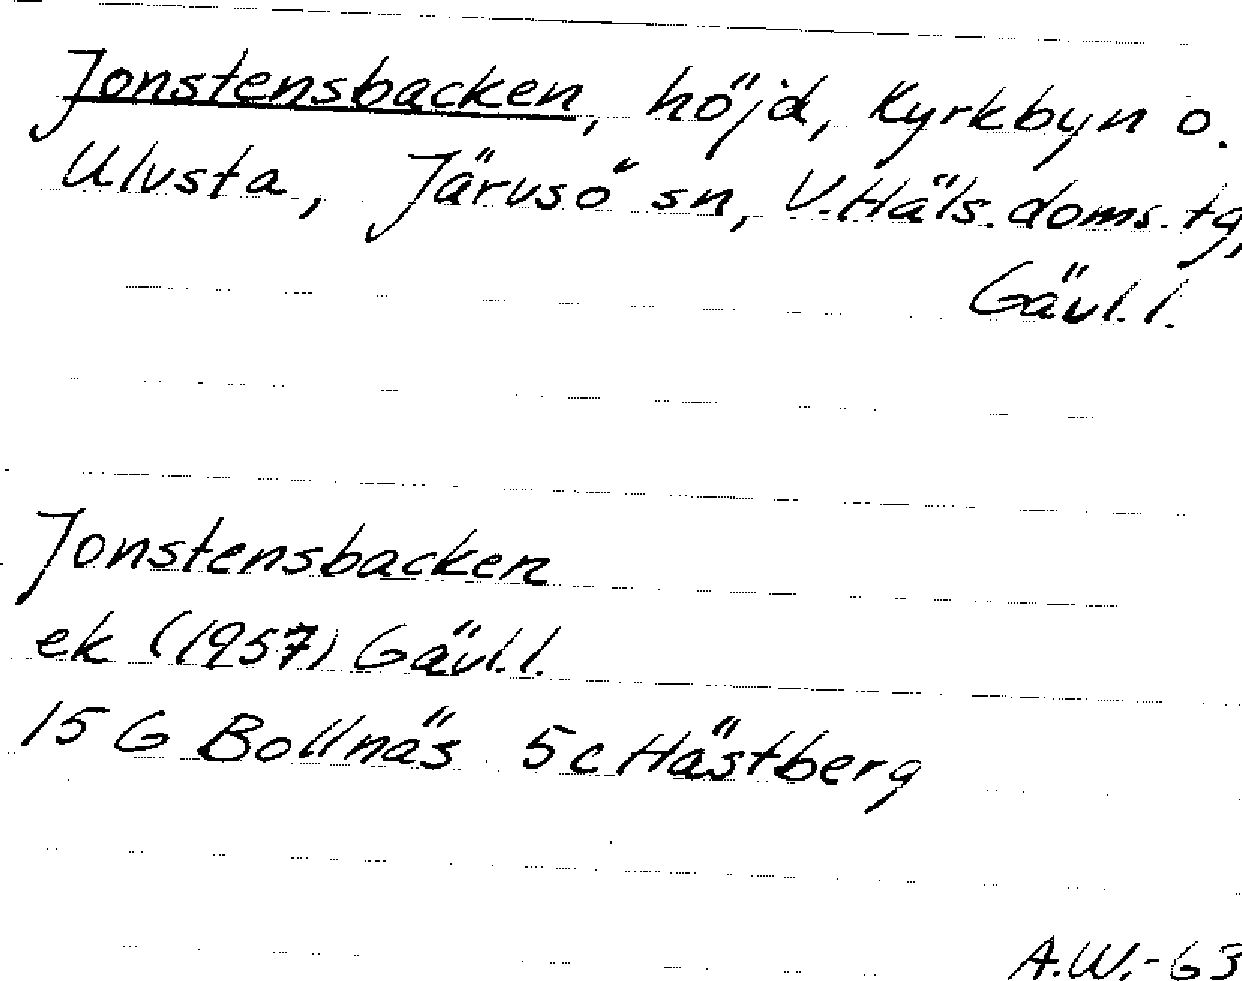 Jonstensbacken, höjd, Kyrkbyn o.
Ulvsta, Järvsö sn, V. Häls. doms. tg,
Gävl. l.
Jonstensbacken
ek (1957) Gävl. l.
15 G Bollnäs 5c Hästberg
A.W.-63